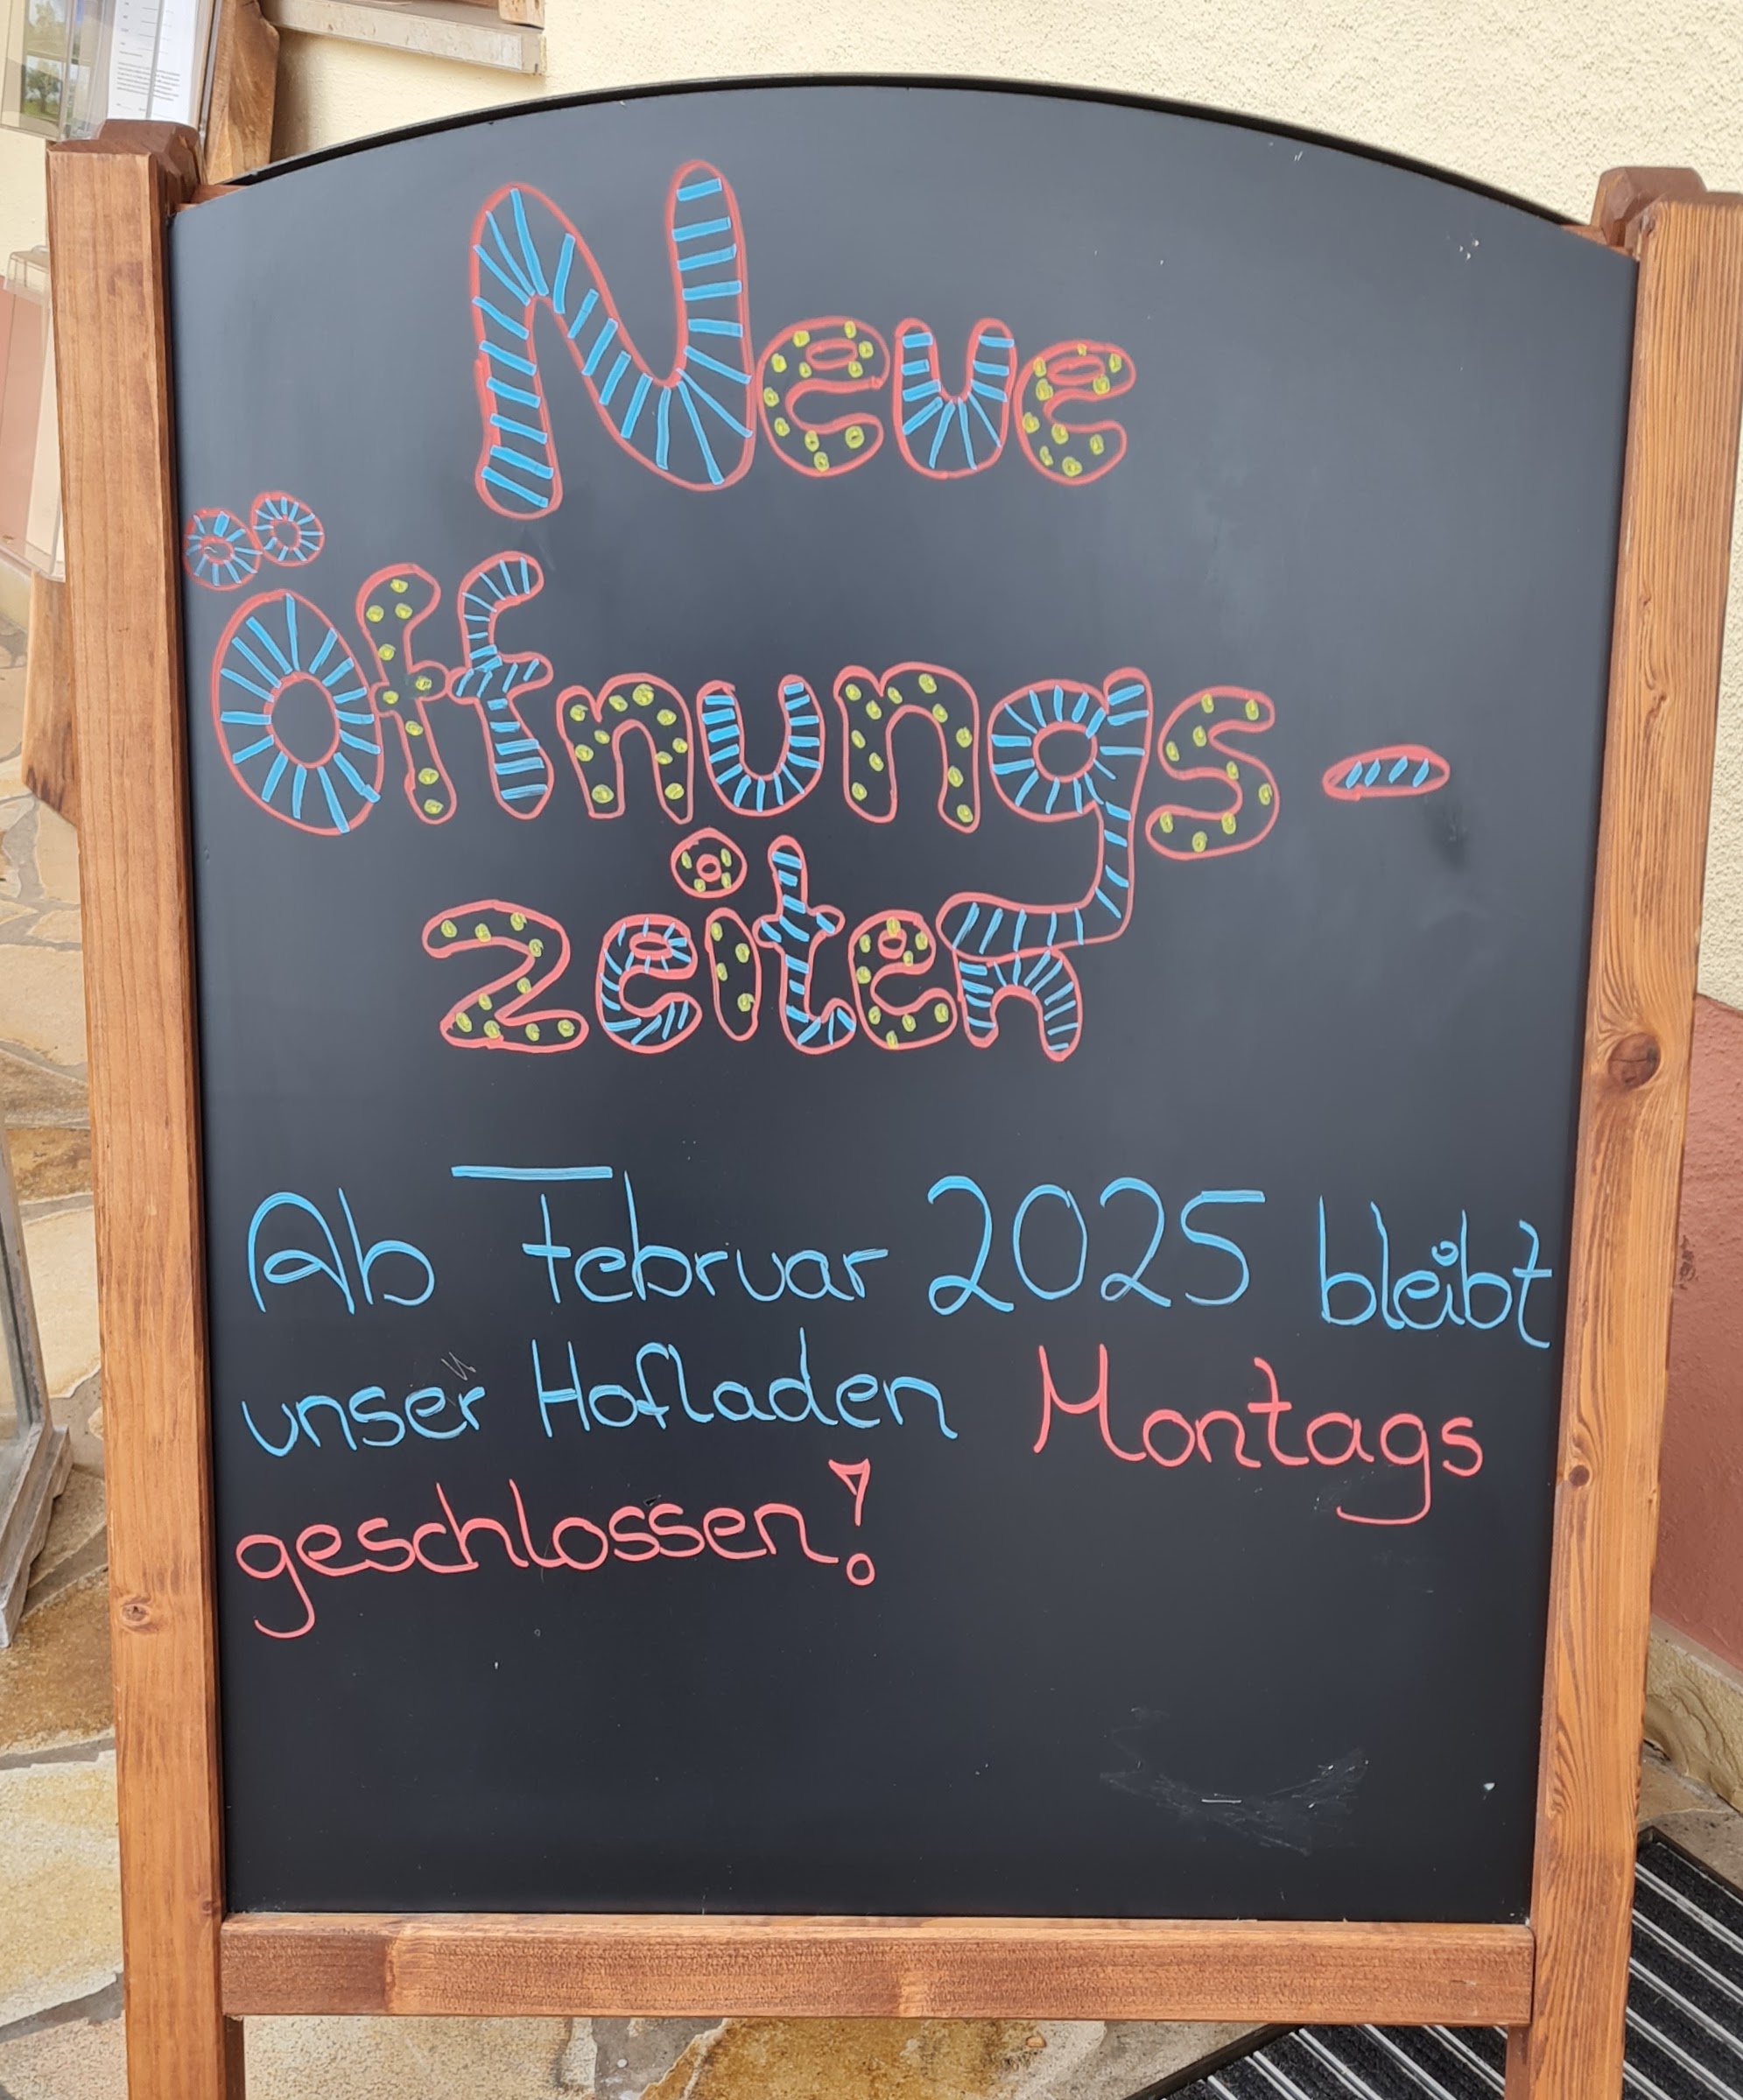 Neue
Öffnungs-
zeiten
Ab Februar 2025 bleibt
unser Hofladen Montags
geschlossen!